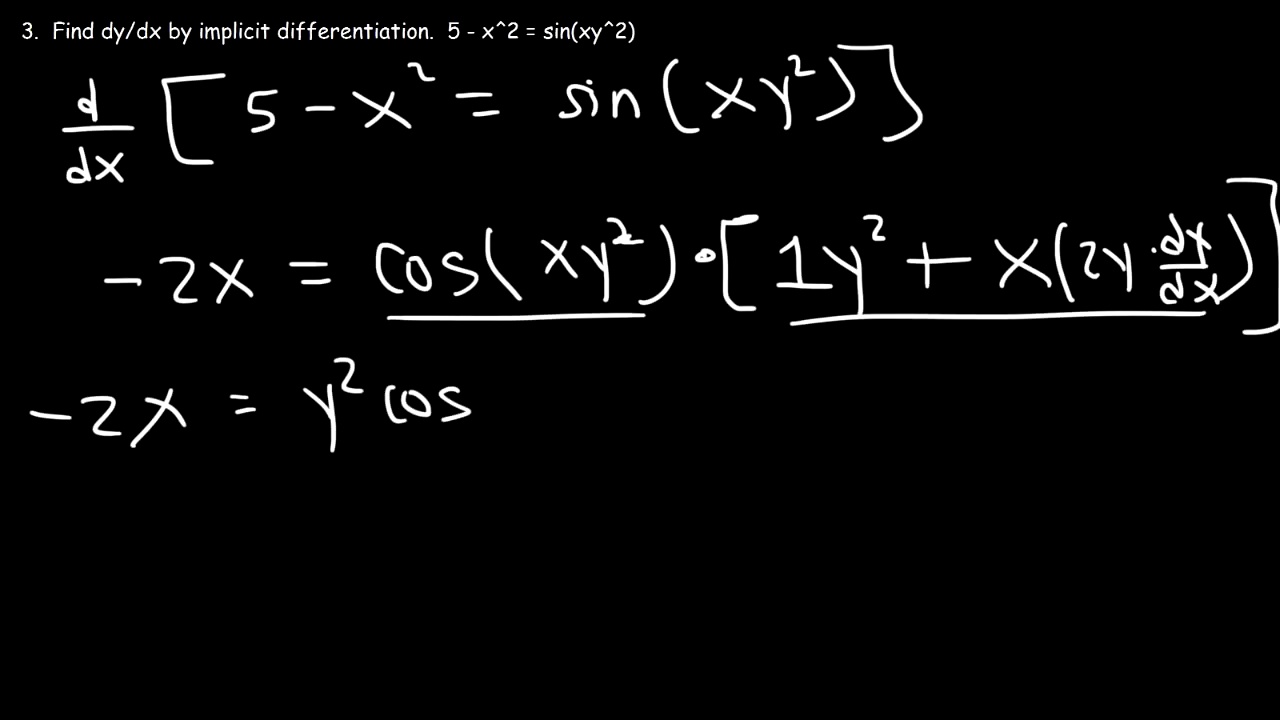 3. Find dy/dx by implicit differentiation. 5 - x^2 = sin(xy^2)
d/dx [5 - x² = sin(xy²)]
-2x = cos(xy²) · [1y² + x(2y · dx/dx)]
-2x = y² cos